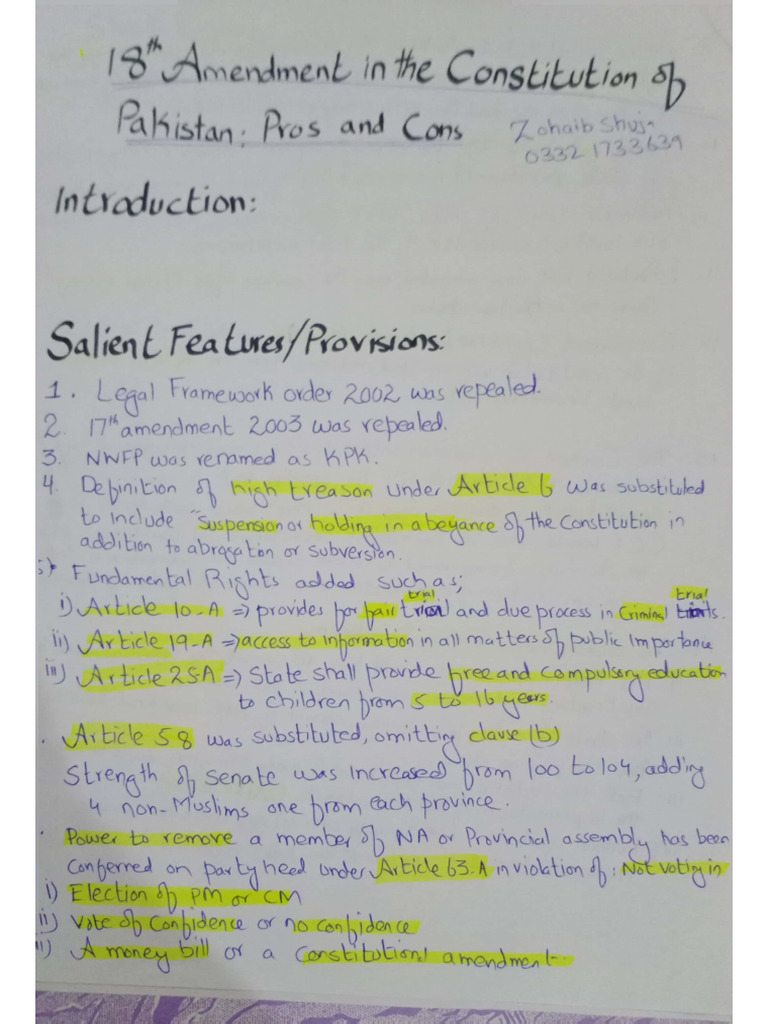 18th Amendment in the Constitution of
Pakistan: Pros and Cons
Zohaib Shuja
0332 1733639
Introduction:
Salient Features/Provisions:
1. Legal Framework order 2002 was repealed.
2. 17th amendment 2003 was repealed.
3. NWFP was renamed as KPK.
4. Definition of high treason under Article 6 was substituted
to include "Suspension or holding in abeyance of the Constitution in
addition to abrogation or subversion.
5. Fundamental Rights added such as;
trial trial
i) Article 10-A => provides for fair trial and due process in Criminal trials.
ii) Article 19-A => access to information in all matters of public importance
iii) Article 25A => State shall provide free and compulsory education
to children from 5 to 16 years.
. Article 58 was substituted, omitting clause (b)
Strength of Senate was increased from 100 to 104, adding
4 non-Muslims one from each province.
. Power to remove a member of NA or Provincial assembly has been
conferred on party head under Article 63-A in violation of: Not voting in
i) Election of PM or CM
ii) Vote of Confidence or no confidence
iii) A money bill or a Constitutional amendment.